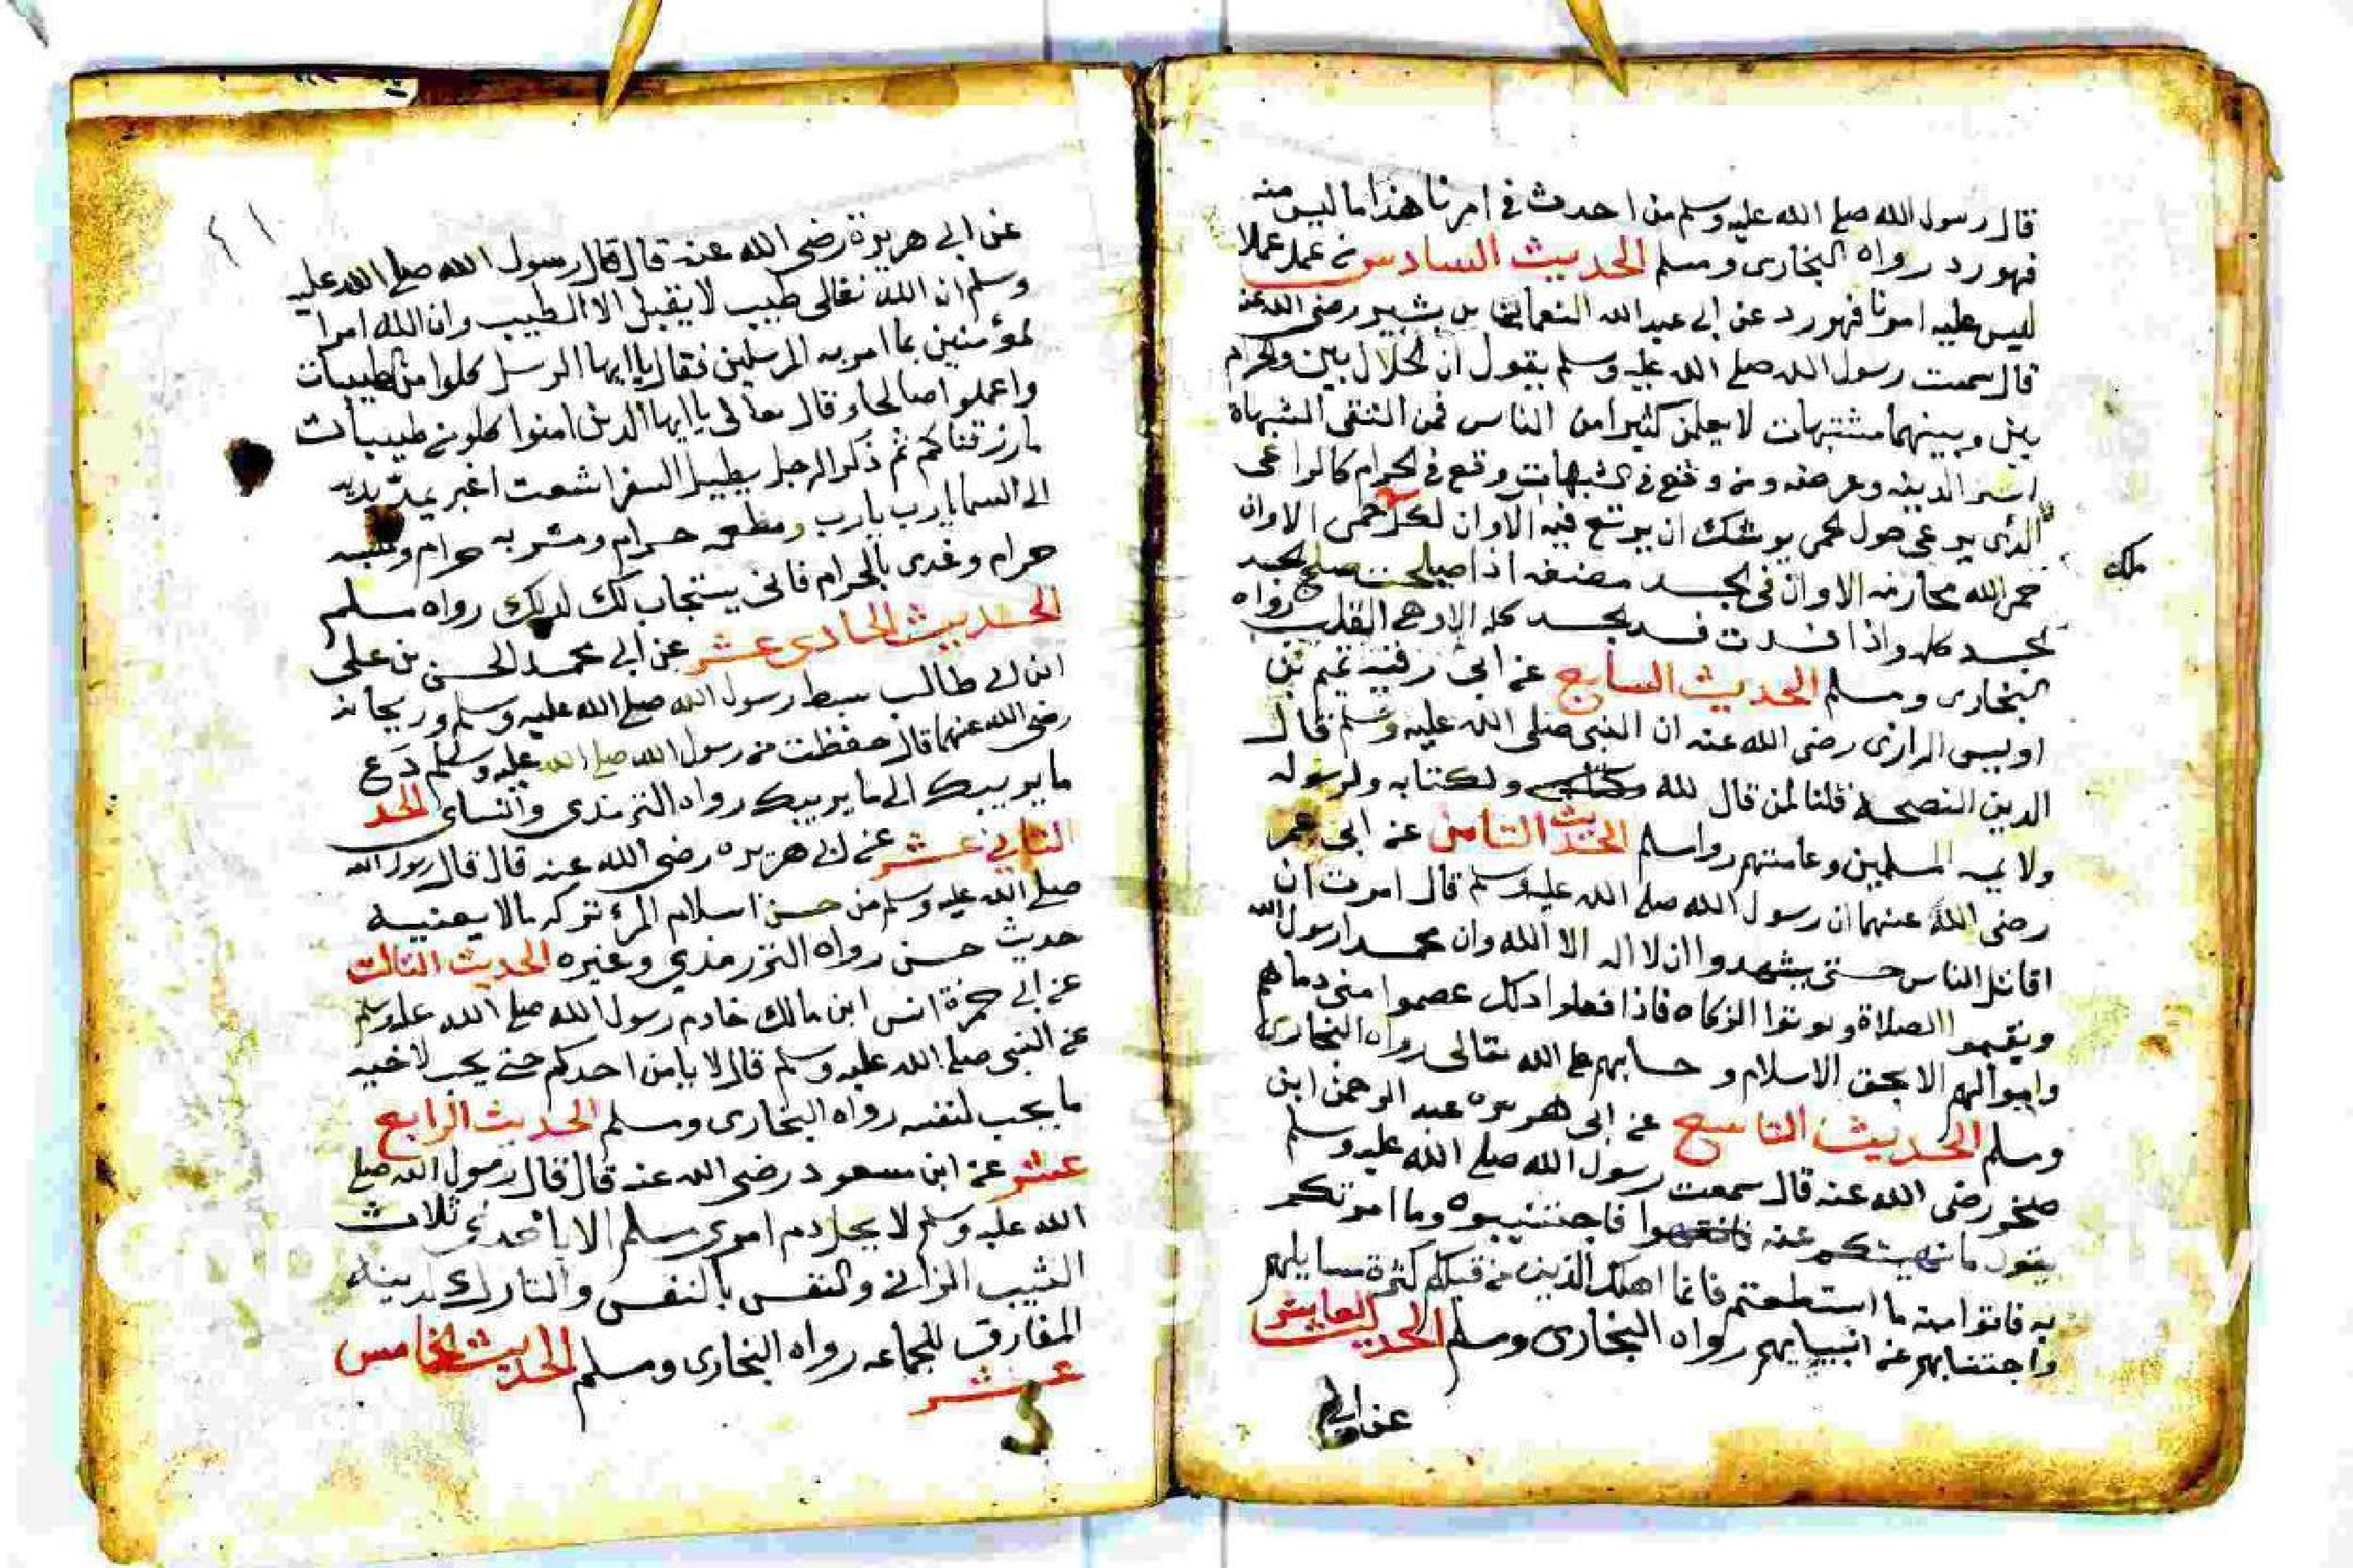 قال رسول الله صلى الله عليه وسلم من احدث في امرنا هذا ما ليس منه
فهو رد رواه البخارى ومسلم الحديث السادس من عمل عملا
ليس عليه امرنا فهو رد عن ابى عبد الله النعمان بن بشير رضى الله عنه
قال سمعت رسول الله صلى الله عليه وسلم يقول ان الحلال بين والحرام
بين وبينهما مشتبهات لا يعلمن كثيرا من الناس فمن اتقى الشبهاة
استبر الدينه وعرضه ومن وقع في الشبهات وقع في الحرام كالراعى
الذى يرعى حول الحمى يوشك ان يرتع فيه الاوان لكل حمى الاوان
ملك
حمى الله محارمه الاوان فى الجسد مضغه اذا صلحت صلح الجسد
الجسد كله واذا فسدت فسد الجسد كله الا وهي القلب رواه
البخارى ومسلم الحديث السابع عن ابى رقيه تميم بن
اويس الدارى رضى الله عنه ان النبى صلى الله عليه وسلم قال
الدين النصحة قلنا لمن قال لله ولكتابه ولرسوله
ولايمه المسلمين وعامتهم رواسلم الحديث الثامن عن ابى عمر
رضى الله عنهما ان رسول الله صلى الله عليه وسلم قال امرت ان
اقاتل الناس حتى يشهدوا ان لا اله الا الله وان محمدا رسول الله
ويقيموا الصلاة ويوتوا الزكاه فاذا فعلوا دلك عصموا منى دماهم
واموالهم الا بحق الاسلام وحسابهم على الله تعالى رواه البخارى
ومسلم الحديث التاسع عن ابى هريره عبد الرحمن ابن
صخر رضى الله عنه قال سمعت رسول الله صلى الله عليه وسلم
يقول ما نهيتكم عنه فاجتنبوه وما امرتكم
به فاتوا منه ما استطعتم فانما اهلك الذين من قبلكم كثرة مسايلهم
واجتنابهم عن انبيايهم رواه البخارى ومسلم الحديث العاشر
عن ابى
عن ابى هريرة رضى الله عنه قال قال رسول الله صلى الله عليه
وسلم ان الله تعالى طيب لا يقبل الا الطيب وان الله امرا
لمؤمنين بما امر به المرسلين فقال يا ايها الرسل كلوا من الطيبات
واعملوا صالحا وقال تعالى يا ايها الدين امنوا كلو من طيبات
ما رزقناكم ثم ذكر الرجل يطيل السفر اشعت اغبر يمد يديه
الى السما يا رب يا رب ومطعمه حرام ومشربه حرام وملبسه
حرام وغدى بالحرام فانى يستجاب لك لدلك رواه مسلم
الحديث الحادى عشر عن ابى محمد الحسن بن على
ابن ابى طالب سبط رسول الله صلى الله عليه وسلم وريحانه
رضى الله عنهما قال حفظت من رسول الله صلى الله عليه وسلم دع
ما يريبك الى ما يريبك رواه الترمذى والنساى الحد
الثاني عشر عن ابى هريره رضى الله عنه قال قال رسول الله
صلى الله عليه وسلم من حسن اسلام المرء تركه مالا يعنيه
حديث حسن رواه الترمذي وغيره الحديث الثالث
عن ابى حمزة انس ابن مالك خادم رسول الله صلى الله عليه وسلم
عن النبى صلى الله عليه وسلم قال لا يامن احدكم حتى يحب لاخيه
ما يحب لنفسه رواه البخارى ومسلم الحديث الرابع
عشر عن ابن مسعود رضى الله عنه قال قال رسول الله صلى
الله عليه وسلم لا يحل دم امرى مسلم الا باحدى ثلاث
الثيب الزانى والنفس بالنفس والتارك لدينه
المفارق للجماعه رواه البخارى ومسلم الحديث الخامس
عشر